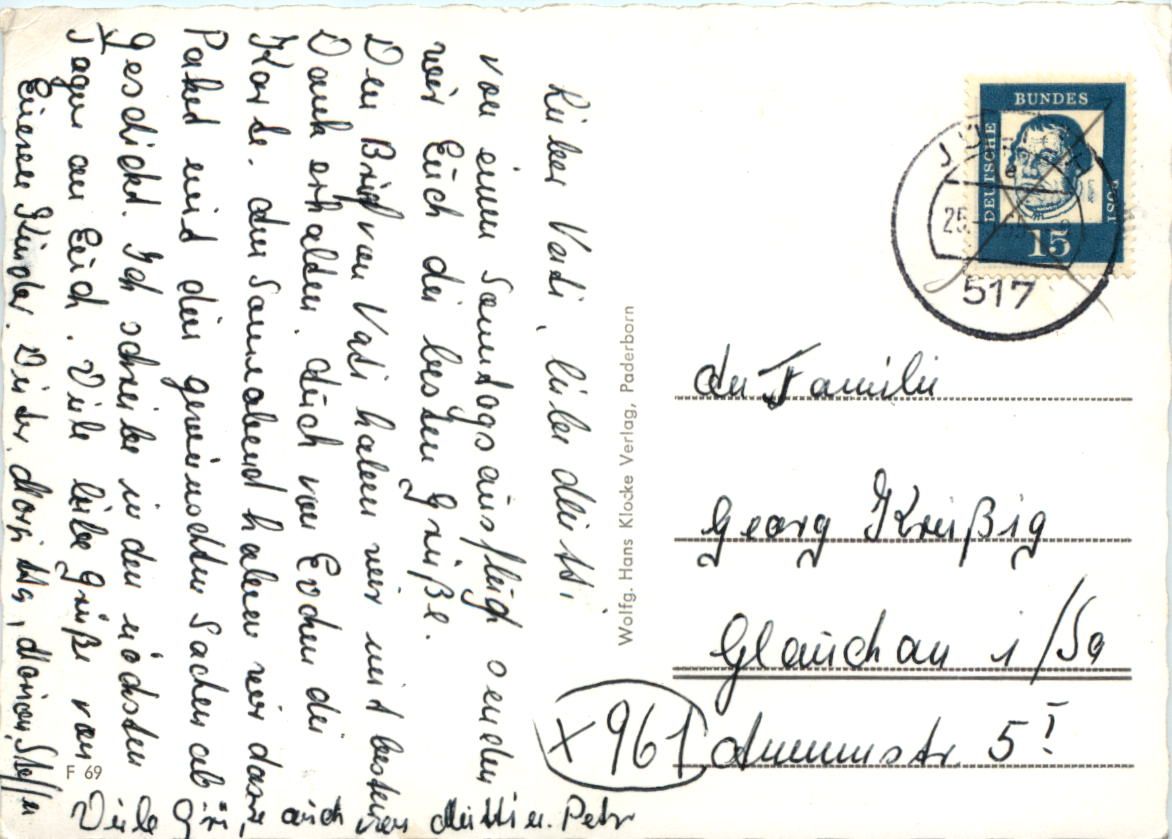 Lieber Vati, liebe Mutti,
von einem Sonntagsausflug senden
wir Euch die besten Grüße.
Den Brief von Vati haben wir mit bestem
Dank erhalten. Auch von Euch die
Karte. Am Sonnabend haben wir das
Paket mit den gewünschten Sachen ab
geschickt. Ich schreibe in den nächsten
Tagen an Euch. Viele liebe Grüße von
Eueren Kinder Dieter, Marion, Steffen
Viele Grü, auch von Mutti u. Petr
F 69
Wolfg. Hans Klocke Verlag, Paderborn
DEUTSCHE BUNDESPOST
15
25.
517
An Familie
Georg Kreißig
Glauchau i/Sa
X 961
Ammenstr. 5 I